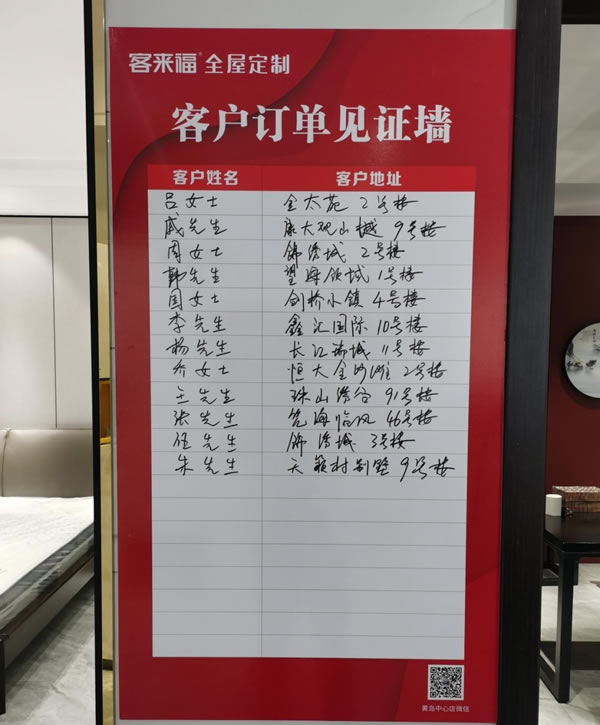 客来福® 全屋定制
客户订单见证墙
客户姓名 客户地址
吕女士 金太苑 2号楼
戚先生 康大观山樾 9号楼
周女士 锦绣城 2号楼
韩先生 望海领域 1号楼
国女士 剑桥小镇 4号楼
李先生 鑫汇国际 10号楼
杨先生 长江瑞城 11号楼
乔女士 恒大金沙滩 2号楼
王先生 珠山谷 91号楼
张先生 海临风 46号楼
任先生 锦绣城 3号楼
朱先生 天籁村别墅 9号楼
黄岛中心店微信